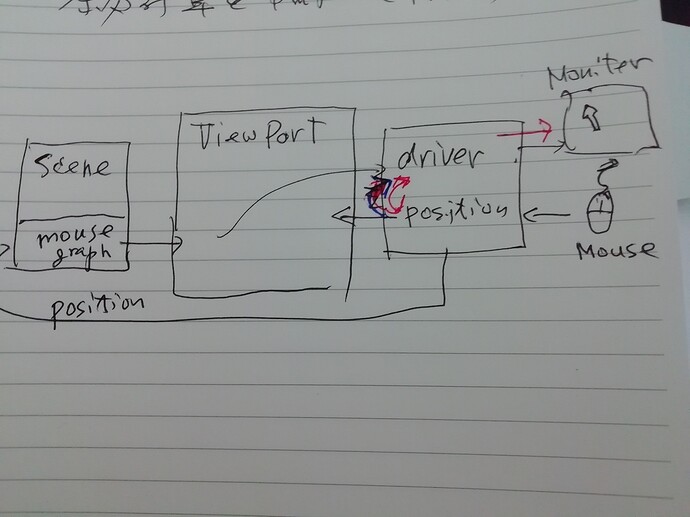 Moniter
ViewPort
Scene
driver
mouse
graph
position
Mouse
position